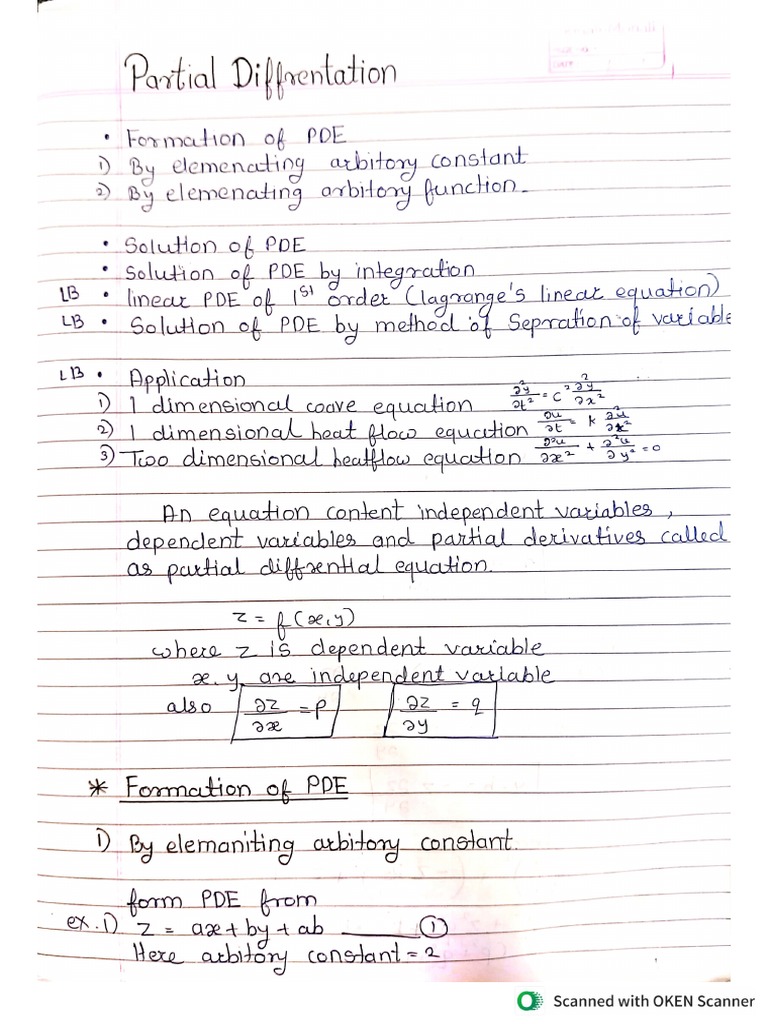 Partial Diffrentation
• Formation of PDE
1) By elemenating arbitory constant
2) By elemenating arbitory function.
• Solution of PDE
• Solution of PDE by integration
LB • linear PDE of 1st order (lagrange's linear equation)
LB • Solution of PDE by method of Sepration of variable
LB • Application
1) 1 dimensional wave equation ∂²y/∂t² = c² ∂²y/∂x²
2) 1 dimensional heat flow equation ∂u/∂t = k ∂²u/∂x²
3) Two dimensional heatflow equation ∂²u/∂x² + ∂²u/∂y² = 0
An equation content independent variables,
dependent variables and partial derivatives called
as partial diffrential equation.
z = f(x,y)
where z is dependent variable
x, y are independent variable
also ∂z/∂x = p ∂z/∂y = q
* Formation of PDE
1) By elemaniting arbitory constant.
form PDE from
ex.1) z = ax + by + ab ——— ①
Here arbitory constant = 2
Scanned with OKEN Scanner